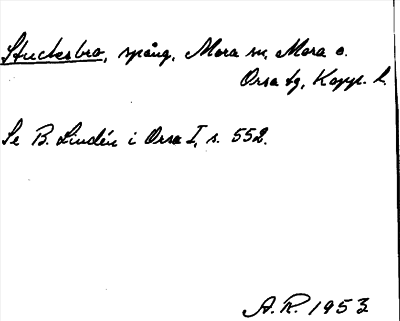 Stucksbro, spång, Mora sn, Mora o.
Orsa tg, Kopp. l.
Se B. Lindén i Orsa I, s. 552.
A.R. 1953